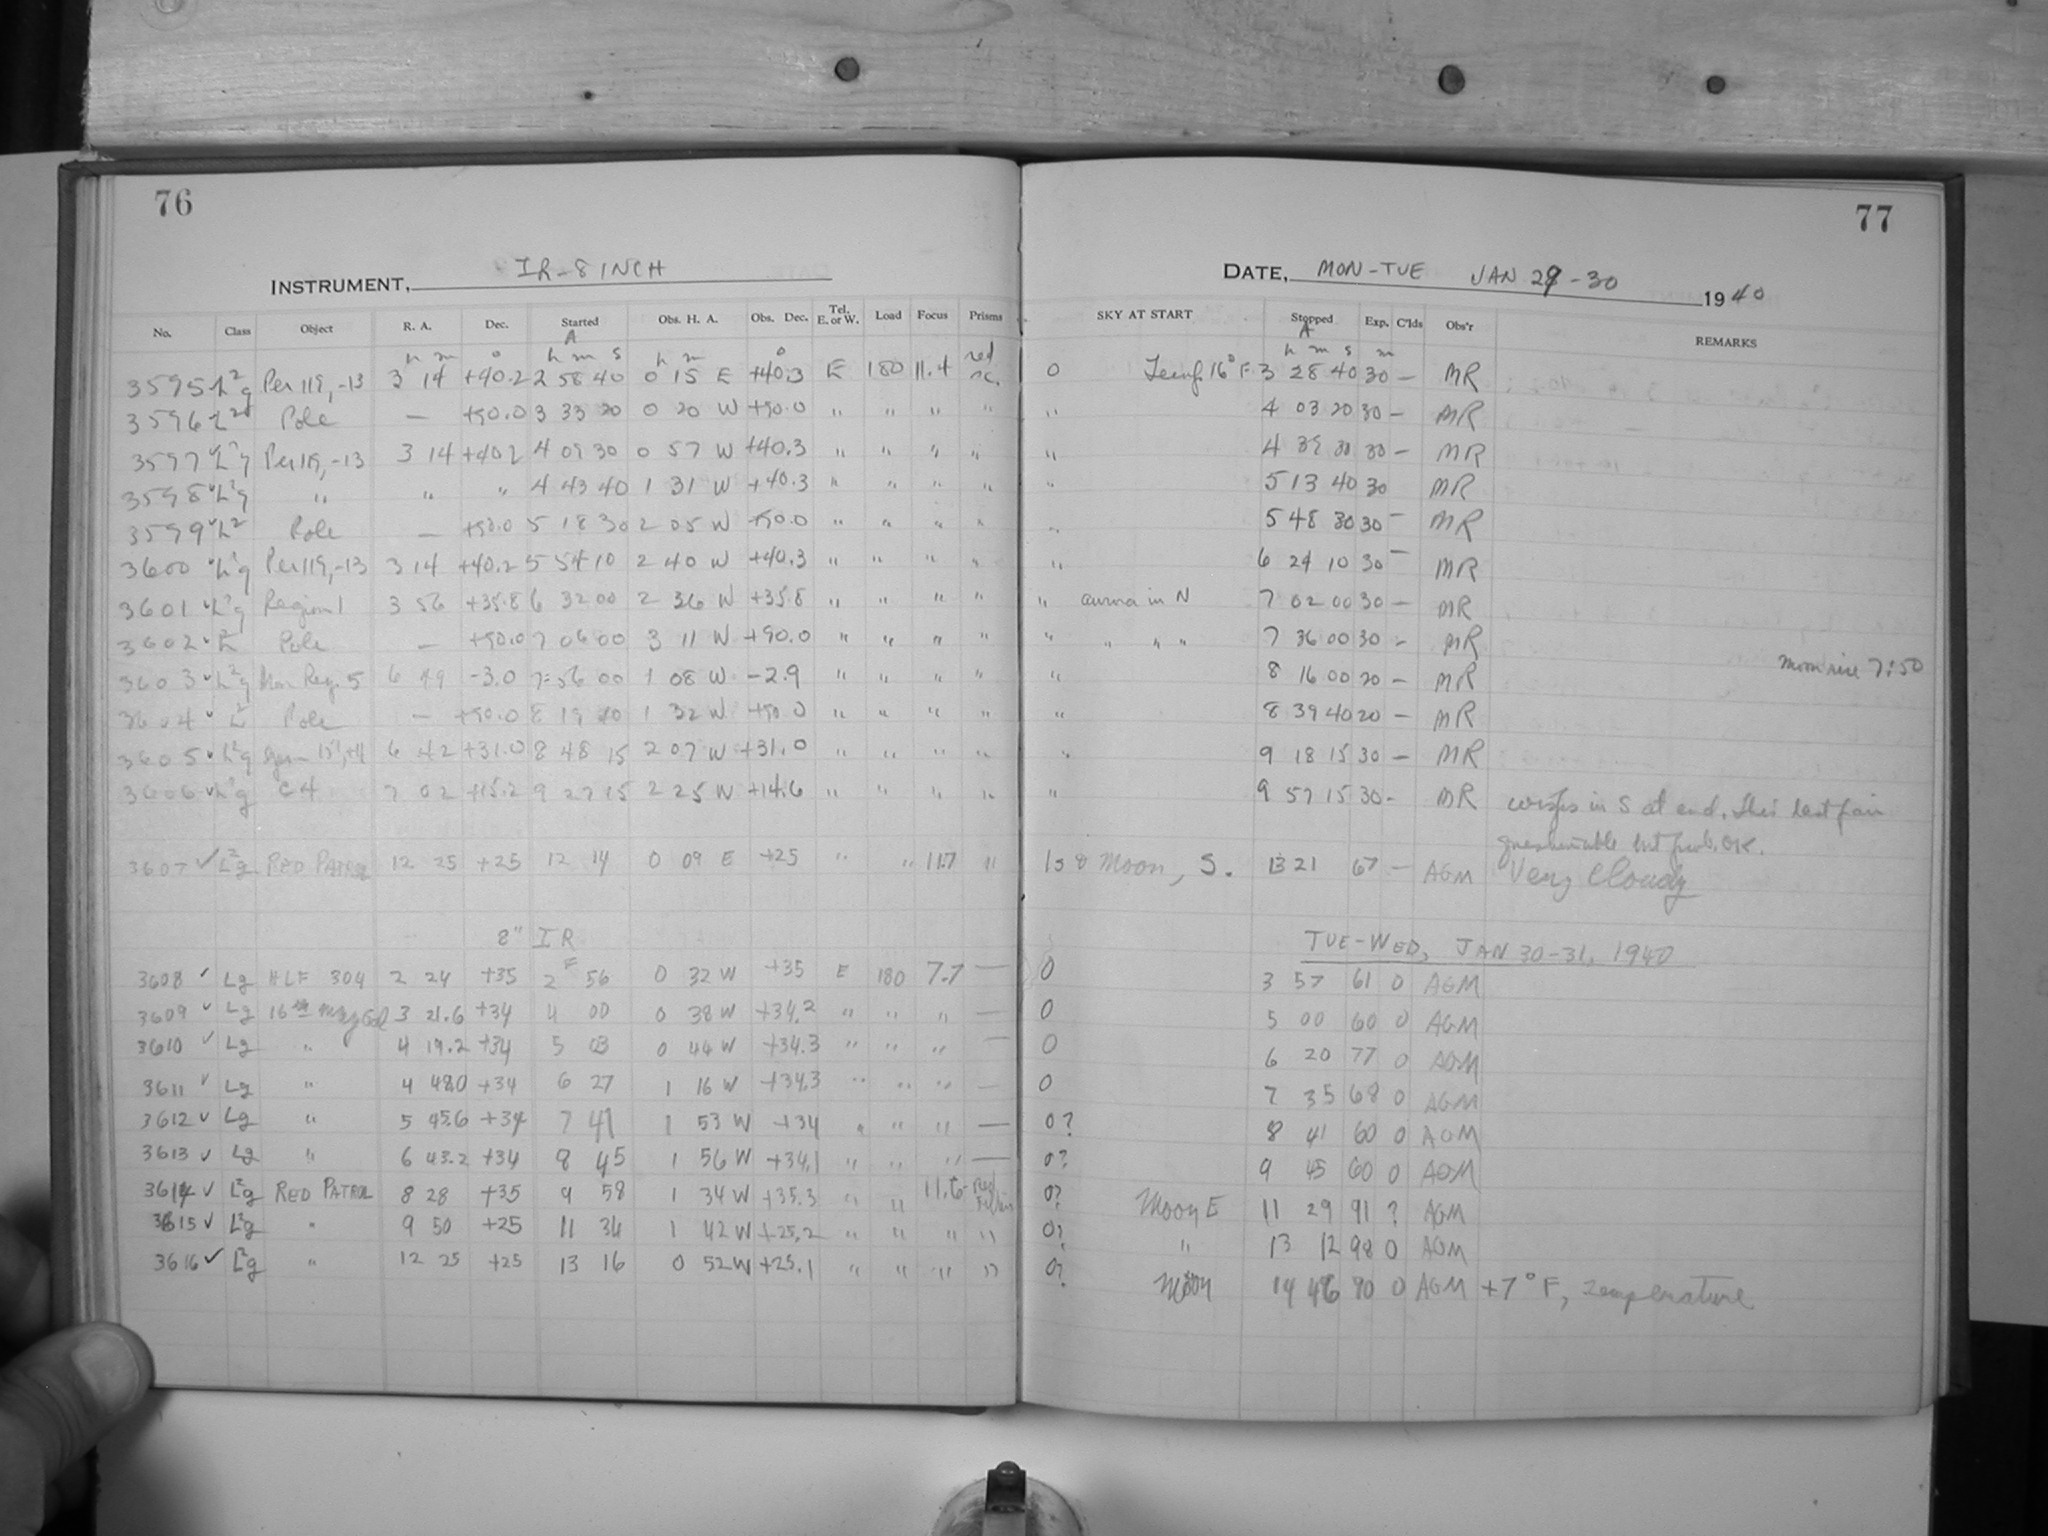 76
77
INSTRUMENT, IR-8 INCH
DATE, MON-TUE JAN 29-30 1940
No. Class Object R. A. Dec. Started Obs. H. A. Obs. Dec. Tel. E. or W. Load Focus Prisms SKY AT START Stopped Exp. C'lds Obs'r REMARKS
A A
h m ° h m s h m ° h m s m
3595 L²g Per 119, -13 3 14 +40.2 2 58 40 0 15 E +40.3 E 180 11.4 red 0 Temp. 16° F. 3 28 40 30 — MR
3596 L² Pole — +90.0 3 33 20 0 20 W +90.0 " " " " " 4 03 20 30 — MR
3597 L²g Per 119, -13 3 14 +40.2 4 09 30 0 57 W +40.3 " " " " " 4 39 30 30 — MR
3598 L²g " " " 4 43 40 1 31 W +40.3 " " " " " 5 13 40 30 MR
3599 L² Pole — +90.0 5 18 30 2 05 W +90.0 " " " " " 5 48 30 30 — MR
3600 L²g Per 119, -13 3 14 +40.2 5 54 10 2 40 W +40.3 " " " " " 6 24 10 30 — MR
3601 L²g Region 1 3 56 +35.8 6 32 00 2 36 W +35.8 " " " " " aurora in N 7 02 00 30 — MR
3602 L² Pole — +90.0 7 06 00 3 11 W +90.0 " " " " " " " " 7 36 00 30 — MR
moon rise 7:50
3603 L²g Mon Reg. 5 6 49 -3.0 7 56 00 1 08 W -2.9 " " " " " 8 16 00 20 — MR
3604 L² Pole — +90.0 8 19 40 1 32 W +90.0 " " " " " 8 39 40 20 — MR
3605 L²g 6 42 +31.0 8 48 15 2 07 W +31.0 " " " " " 9 18 15 30 — MR
3606 L²g C4 7 02 +15.2 9 27 15 2 25 W +14.6 " " " " " 9 57 15 30 - MR wisps in S at end. This last pair
questionable but prob. OK.
3607 ✓ L²g RED PATROL 12 25 +25 12 14 0 09 E +25 " " 11.7 " Moon, S. 13 21 67 — AGM Very Cloudy
8" IR
TUE-WED, JAN 30-31, 1940
3608 ✓ Lg HLF 304 2 24 +35 2 56 0 32 W +35 E 180 7.7 — 0 3 57 61 0 AGM
3609 ✓ Lg 16th Mag Gal 3 21.6 +34 4 00 0 38 W +34.2 " " " — 0 5 00 60 0 AGM
3610 ✓ Lg " 4 19.2 +34 5 03 0 44 W +34.3 " " " — 0 6 20 77 0 AGM
3611 ✓ Lg " 4 48.0 +34 6 27 1 16 W +34.3 " " " — 0 7 35 68 0 AGM
3612 ✓ Lg " 5 45.6 +34 7 41 1 53 W +34 " " " — 0? 8 41 60 0 AGM
3613 ✓ Lg " 6 43.2 +34 8 45 1 56 W +34.1 " " " — 0? 9 45 60 0 AGM
3614 ✓ L²g RED PATROL 8 28 +35 9 58 1 34 W +35.3 " " 11.6 Red 0? Moon E 11 29 91 ? AGM
3615 ✓ L²g " 9 50 +25 11 34 1 42 W +25.2 " " " " 0? " 13 12 98 0 AGM
3616 ✓ L²g " 12 25 +25 13 16 0 52 W +25.1 " " " " 0? Moon 14 46 90 0 AGM +7° F, Temperature